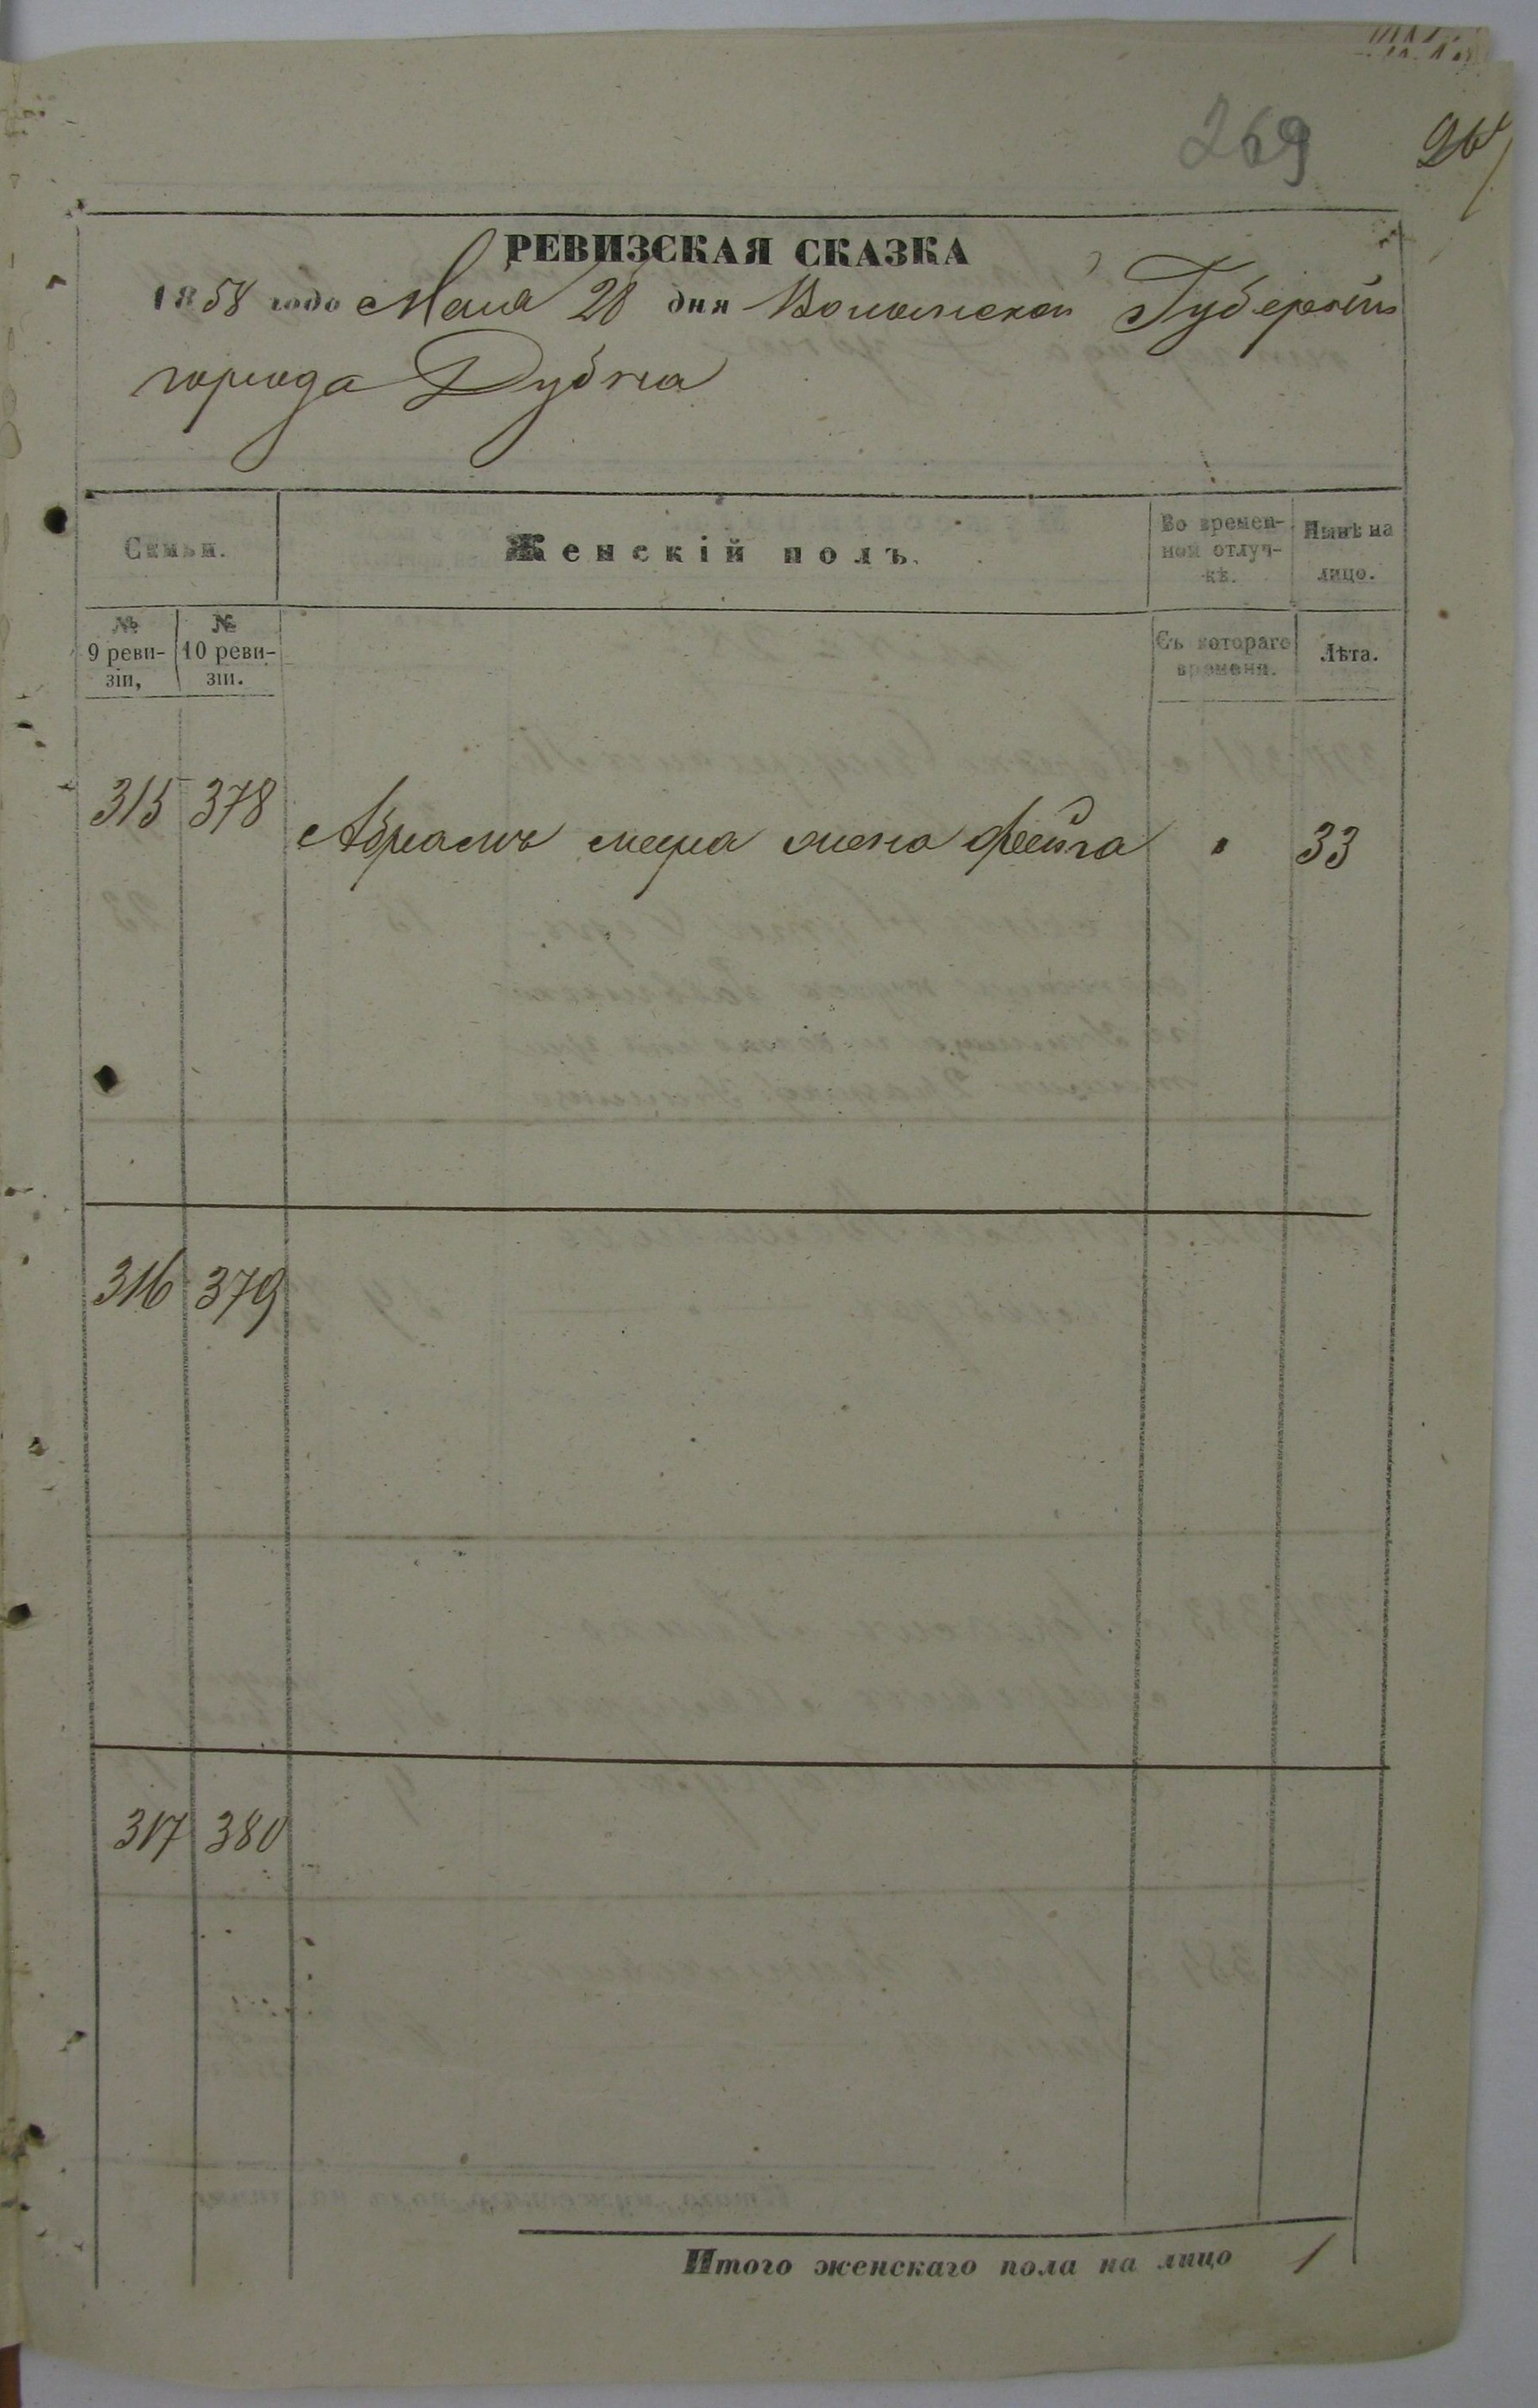 269
РЕВИЗСКАЯ СКАЗКА
1858 года Мая 28 дня Волынской Губернiи
города Дубна
Семьи.
Женскiй полъ.
Во времен-
ной отлуч-
кѣ.
Нынѣ на
лицо.
№
9 реви-
зiи,
№
10 реви-
зiи.
Съ котораго
времени.
Лѣта.
315 378
Абрамъ жена Фейга " 33
316 379
317 380
Итого женскаго пола на лицо 1